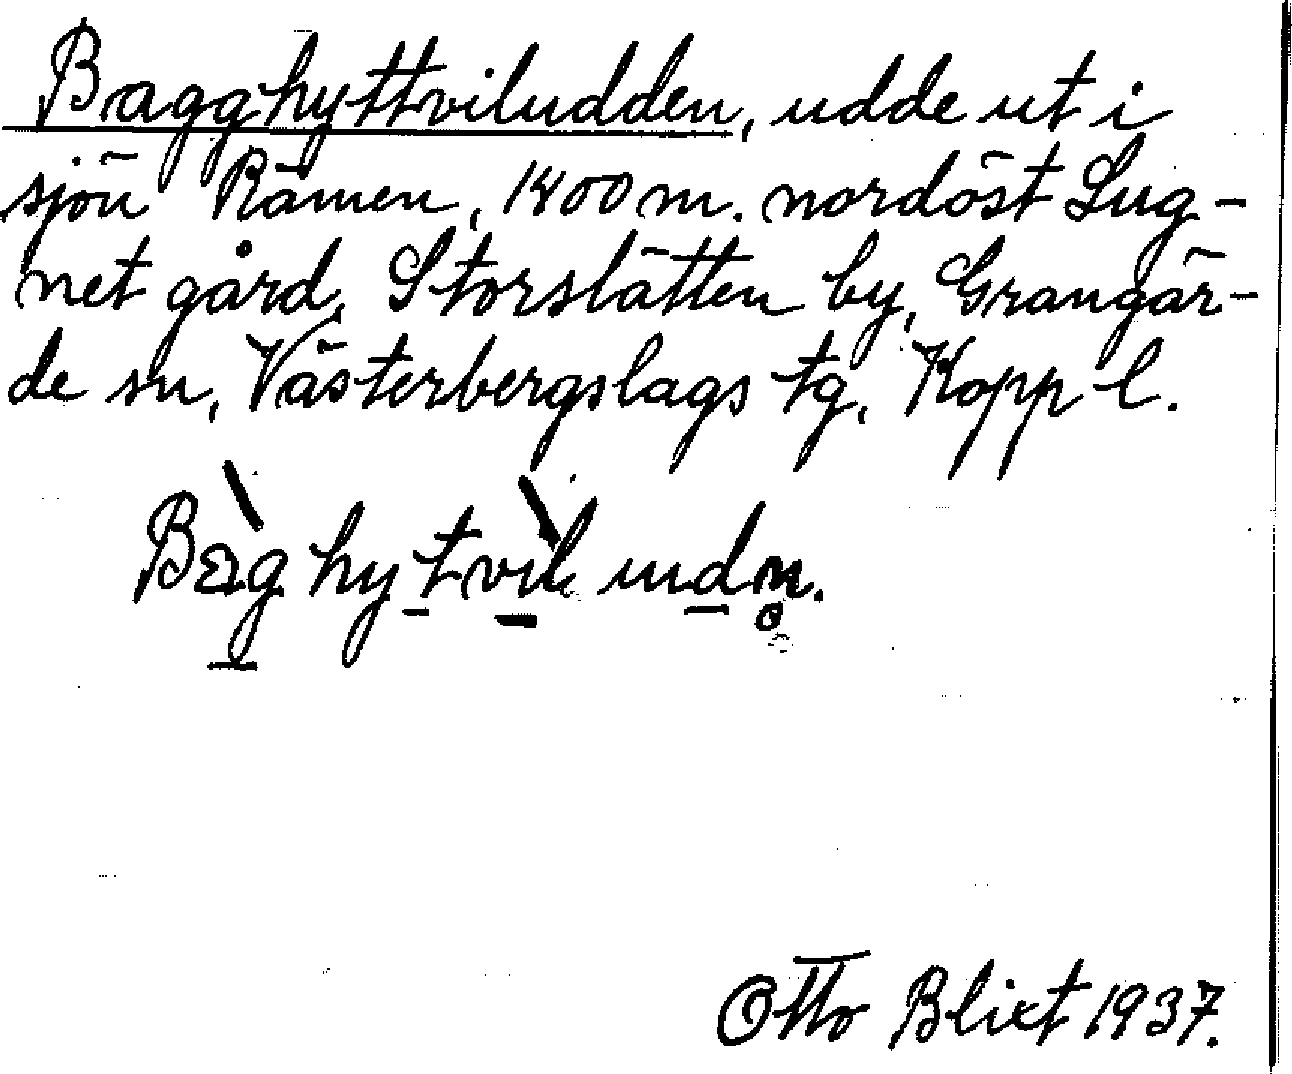 Bagghyttviludden, udde ut i
sjön Rämen, 1400 m. nordöst Lug-
net gård, Storslätten by, Grangär-
de sn, Västerbergslags tg, Kopp l.
Otto Blixt 1937.